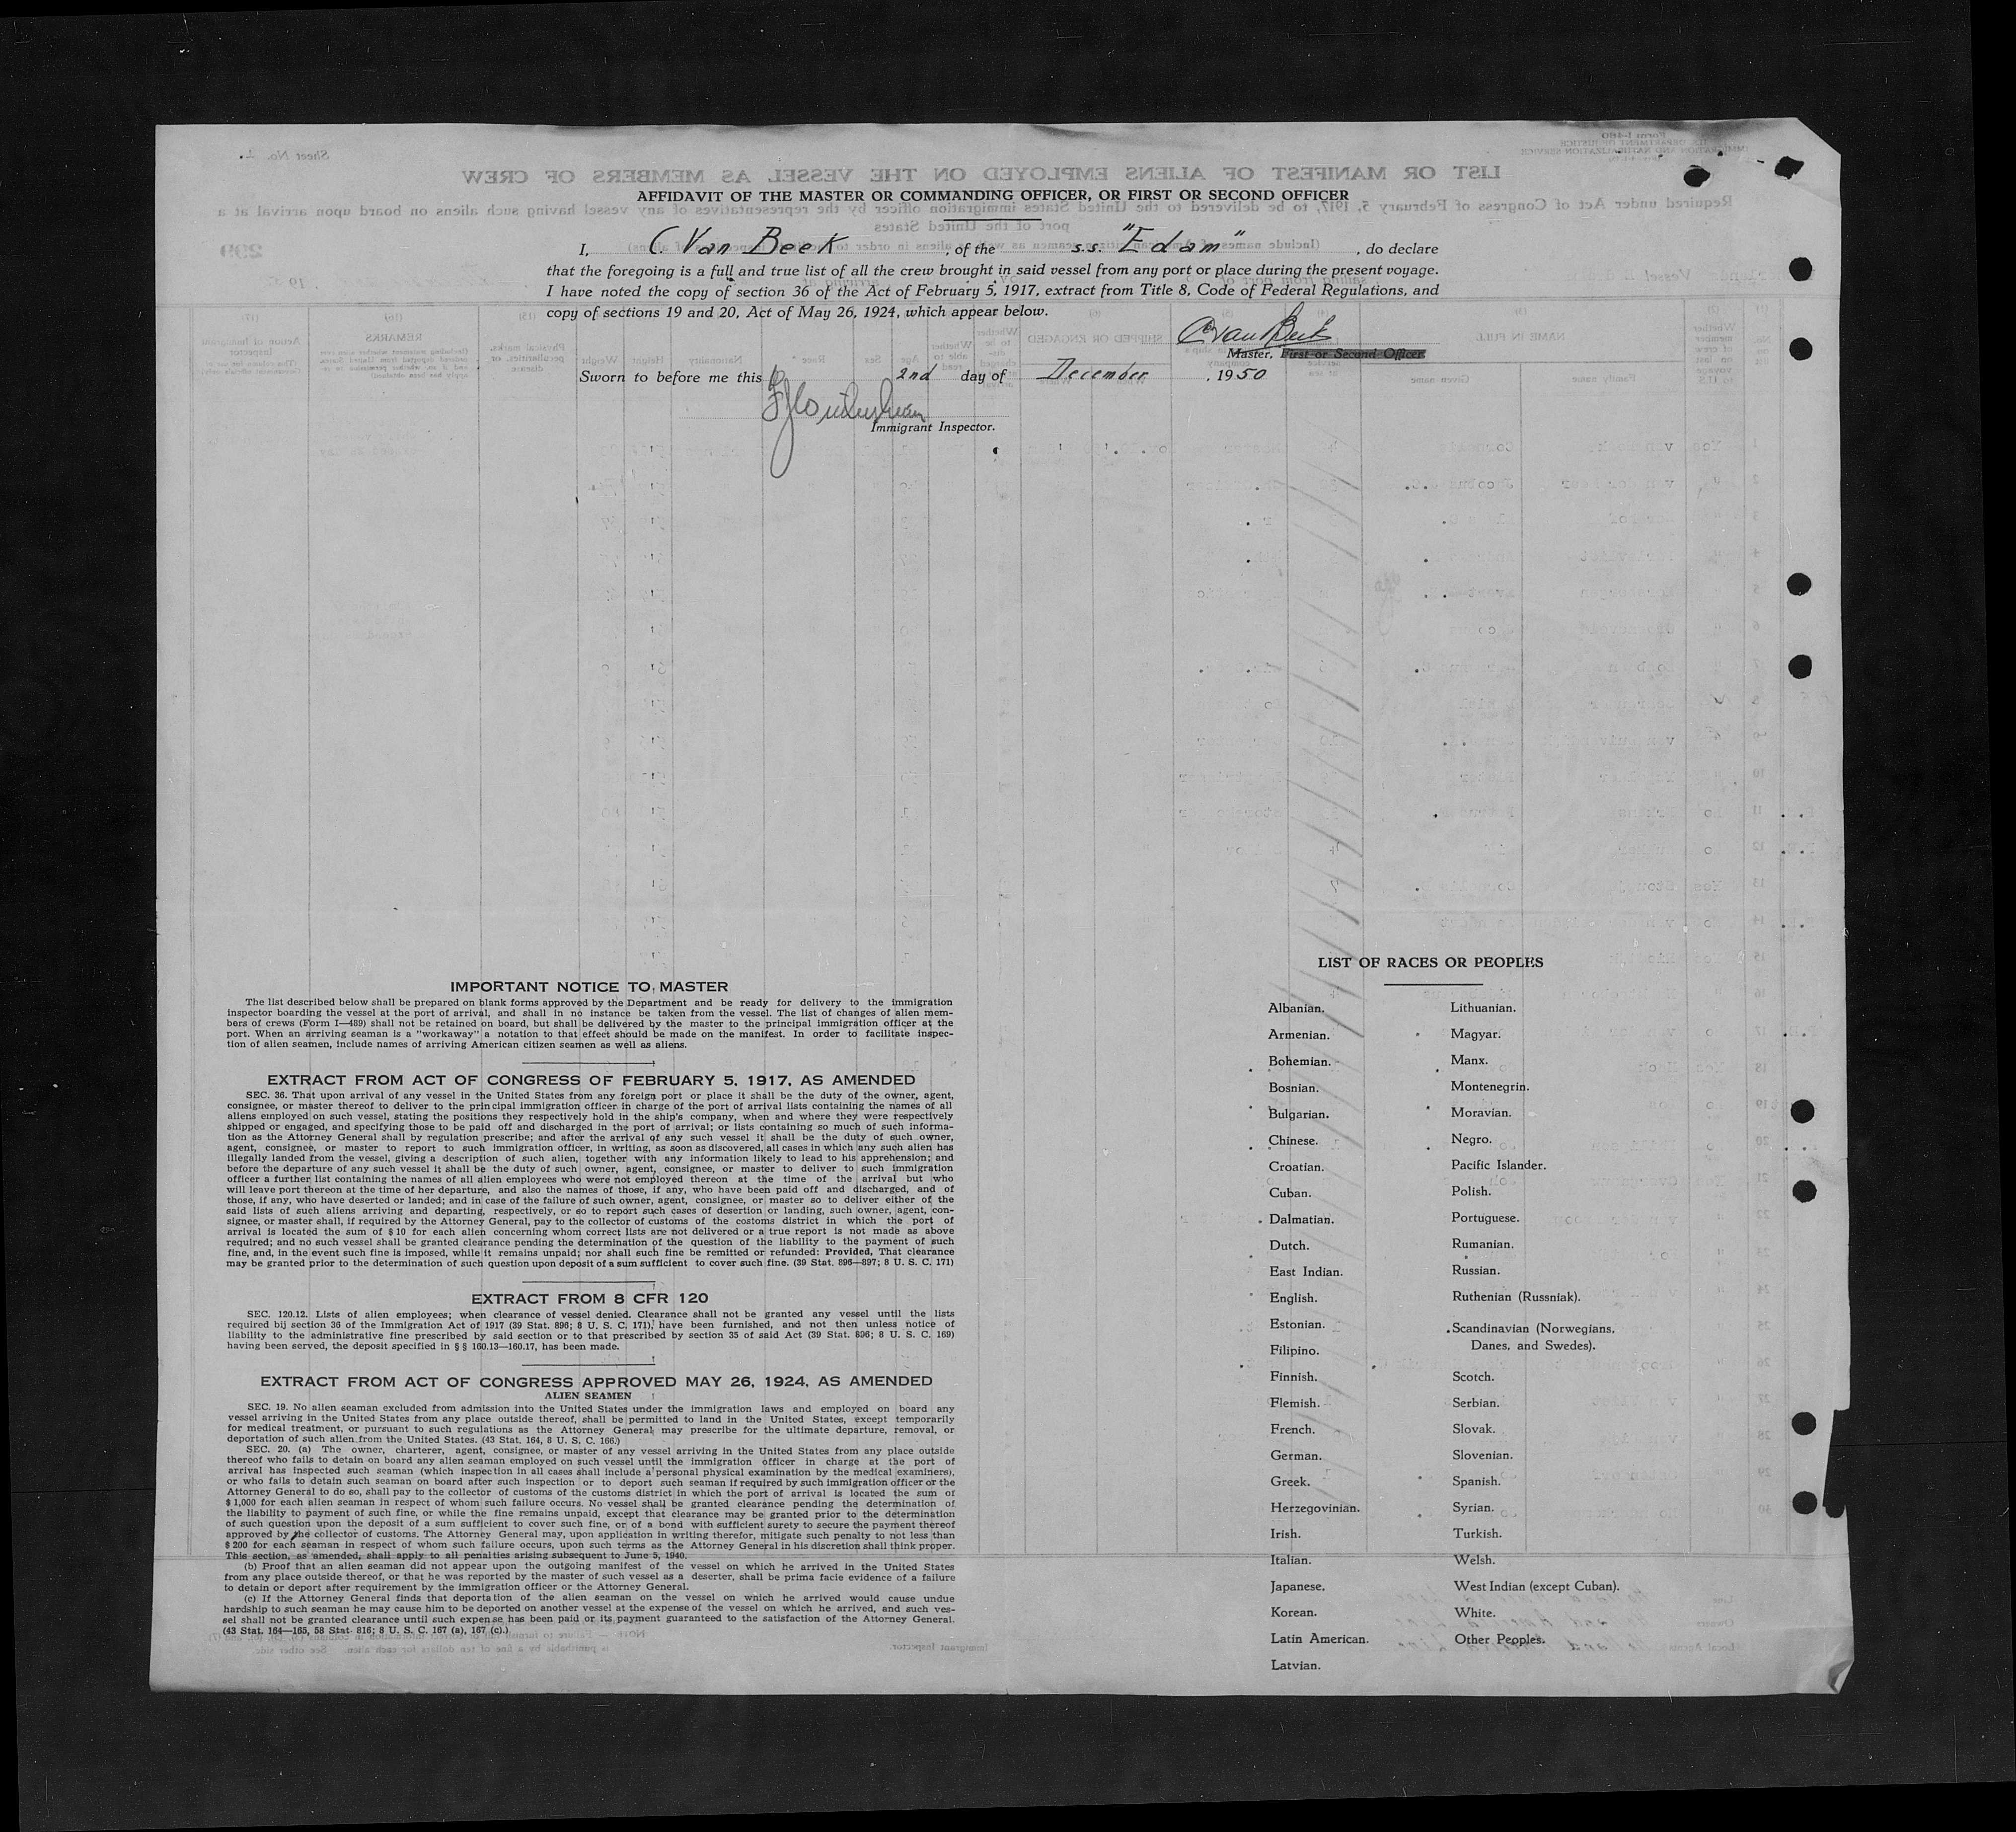 AFFIDAVIT OF THE MASTER OR COMMANDING OFFICER, OR FIRST OR SECOND OFFICER
I, C. Van Beek, of the s.s. "Edam", do declare
that the foregoing is a full and true list of all the crew brought in said vessel from any port or place during the present voyage.
I have noted the copy of section 36 of the Act of February 5, 1917, extract from Title 8, Code of Federal Regulations, and
copy of sections 19 and 20, Act of May 26, 1924, which appear below.
C van Beek
Master, First or Second Officer.
Sworn to before me this 2nd day of December, 1950
Immigrant Inspector.
IMPORTANT NOTICE TO MASTER
The list described below shall be prepared on blank forms approved by the Department and be ready for delivery to the immigration
inspector boarding the vessel at the port of arrival, and shall in no instance be taken from the vessel. The list of changes of alien mem-
bers of crews (Form I—489) shall not be retained on board, but shall be delivered by the master to the principal immigration officer at the
port. When an arriving seaman is a "workaway" a notation to that effect should be made on the manifest. In order to facilitate inspec-
tion of alien seamen, include names of arriving American citizen seamen as well as aliens.
EXTRACT FROM ACT OF CONGRESS OF FEBRUARY 5, 1917, AS AMENDED
SEC. 36. That upon arrival of any vessel in the United States from any foreign port or place it shall be the duty of the owner, agent,
consignee, or master thereof to deliver to the principal immigration officer in charge of the port of arrival lists containing the names of all
aliens employed on such vessel, stating the positions they respectively hold in the ship's company, when and where they were respectively
shipped or engaged, and specifying those to be paid off and discharged in the port of arrival; or lists containing so much of such informa-
tion as the Attorney General shall by regulation prescribe; and after the arrival of any such vessel it shall be the duty of such owner,
agent, consignee, or master to report to such immigration officer, in writing, as soon as discovered, all cases in which any such alien has
illegally landed from the vessel, giving a description of such alien, together with any information likely to lead to his apprehension; and
before the departure of any such vessel it shall be the duty of such owner, agent, consignee, or master to deliver to such immigration
officer a further list containing the names of all alien employees who were not employed thereon at the time of the arrival but who
will leave port thereon at the time of her departure, and also the names of those, if any, who have been paid off and discharged, and of
those, if any, who have deserted or landed; and in case of the failure of such owner, agent, consignee, or master so to deliver either of the
said lists of such aliens arriving and departing, respectively, or so to report such cases of desertion or landing, such owner, agent, con-
signee, or master shall, if required by the Attorney General, pay to the collector of customs of the costoms district in which the port of
arrival is located the sum of $10 for each alien concerning whom correct lists are not delivered or a true report is not made as above
required; and no such vessel shall be granted clearance pending the determination of the question of the liability to the payment of such
fine, and, in the event such fine is imposed, while it remains unpaid; nor shall such fine be remitted or refunded: Provided, That clearance
may be granted prior to the determination of such question upon deposit of a sum sufficient to cover such fine. (39 Stat. 896—897; 8 U. S. C. 171)
EXTRACT FROM 8 CFR 120
SEC. 120.12. Lists of alien employees; when clearance of vessel denied. Clearance shall not be granted any vessel until the lists
required bij section 36 of the Immigration Act of 1917 (39 Stat. 896; 8 U. S. C. 171), have been furnished, and not then unless notice of
liability to the administrative fine prescribed by said section or to that prescribed by section 35 of said Act (39 Stat. 896; 8 U. S. C. 169)
having been served, the deposit specified in §§ 160.13—160.17, has been made.
EXTRACT FROM ACT OF CONGRESS APPROVED MAY 26, 1924, AS AMENDED
ALIEN SEAMEN
SEC. 19. No alien seaman excluded from admission into the United States under the immigration laws and employed on board any
vessel arriving in the United States from any place outside thereof, shall be permitted to land in the United States, except temporarily
for medical treatment, or pursuant to such regulations as the Attorney General may prescribe for the ultimate departure, removal, or
deportation of such alien from the United States. (43 Stat. 164, 8 U. S. C. 166.)
SEC. 20. (a) The owner, charterer, agent, consignee, or master of any vessel arriving in the United States from any place outside
thereof who fails to detain on board any alien seaman employed on such vessel until the immigration officer in charge at the port of
arrival has inspected such seaman (which inspection in all cases shall include a personal physical examination by the medical examiners),
or who fails to detain such seaman on board after such inspection or to deport such seaman if required by such immigration officer or the
Attorney General to do so, shall pay to the collector of customs of the customs district in which the port of arrival is located the sum of
$1,000 for each alien seaman in respect of whom such failure occurs. No vessel shall be granted clearance pending the determination of
the liability to payment of such fine, or while the fine remains unpaid, except that clearance may be granted prior to the determination
of such question upon the deposit of a sum sufficient to cover such fine, or of a bond with sufficient surety to secure the payment thereof
approved by the collector of customs. The Attorney General may, upon application in writing therefor, mitigate such penalty to not less than
$200 for each seaman in respect of whom such failure occurs, upon such terms as the Attorney General in his discretion shall think proper.
This section, as amended, shall apply to all penalties arising subsequent to June 5, 1940.
(b) Proof that an alien seaman did not appear upon the outgoing manifest of the vessel on which he arrived in the United States
from any place outside thereof, or that he was reported by the master of such vessel as a deserter, shall be prima facie evidence of a failure
to detain or deport after requirement by the immigration officer or the Attorney General.
(c) If the Attorney General finds that deportation of the alien seaman on the vessel on which he arrived would cause undue
hardship to such seaman he may cause him to be deported on another vessel at the expense of the vessel on which he arrived, and such ves-
sel shall not be granted clearance until such expense has been paid or its payment guaranteed to the satisfaction of the Attorney General.
(43 Stat. 164—165, 58 Stat. 816; 8 U. S. C. 167 (a), 167 (c).)
LIST OF RACES OR PEOPLES
Albanian.
Armenian.
Bohemian.
Bosnian.
Bulgarian.
Chinese.
Croatian.
Cuban.
Dalmatian.
Dutch.
East Indian.
English.
Estonian.
Filipino.
Finnish.
Flemish.
French.
German.
Greek.
Herzegovinian.
Irish.
Italian.
Japanese.
Korean.
Latin American.
Latvian.
Lithuanian.
Magyar.
Manx.
Montenegrin.
Moravian.
Negro.
Pacific Islander.
Polish.
Portuguese.
Rumanian.
Russian.
Ruthenian (Russniak).
Scandinavian (Norwegians,
Danes, and Swedes).
Scotch.
Serbian.
Slovak.
Slovenian.
Spanish.
Syrian.
Turkish.
Welsh.
West Indian (except Cuban).
White.
Other Peoples.